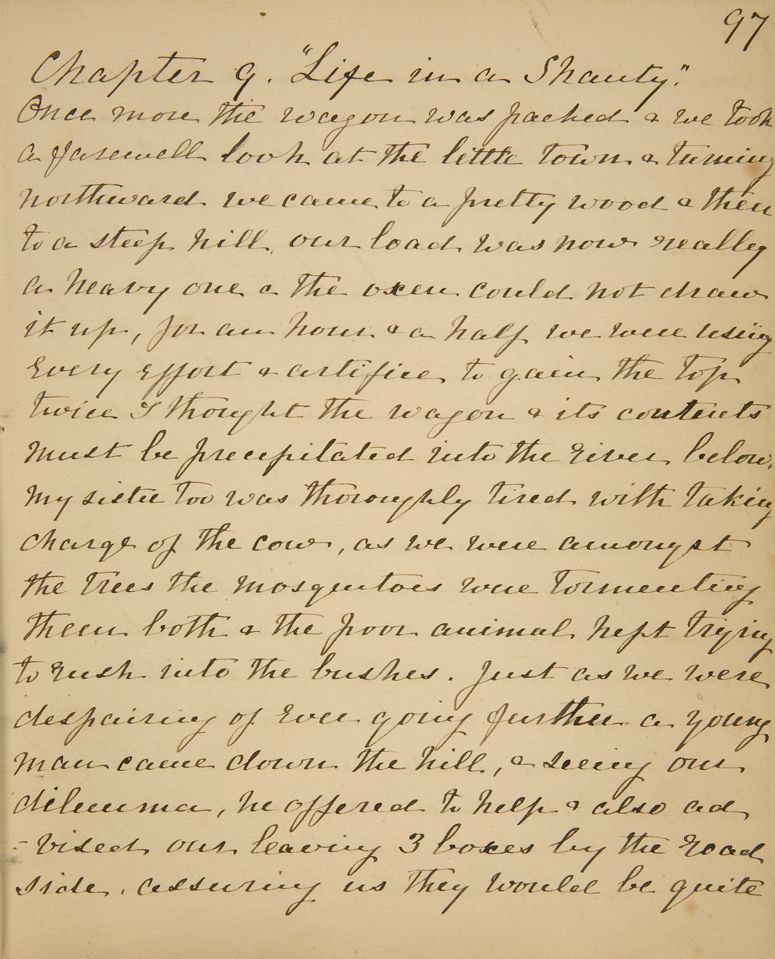 97
Chapter 9. "Life in a Shanty."
Once more the wagon was packed & we took
a farewell look at the little town & turning
northward we came to a pretty wood & then
to a steep hill, our load was now really
a heavy one & the oxen could not draw
it up, for an hour & a half we were using
every effort & artifice to gain the top
twice I thought the wagon & its contents
must be precipitated into the river below.
My sister too was thoroughly tired with taking
charge of the cow, as we were amongst
the trees the mosquitoes were tormenting
them both & the poor animal kept trying
to rush into the bushes. Just as we were
despairing of ever going further a young
man came down the hill, & seeing our
dilemma, he offered to help & also ad
-vised our leaving 3 boxes by the road
side, assuring us they would be quite